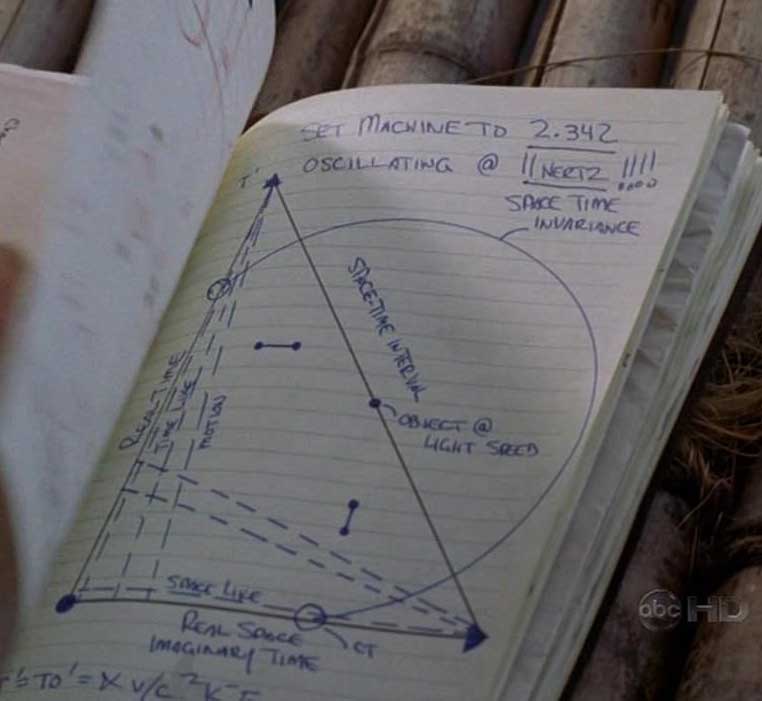 SET MACHINE TO 2.342
OSCILLATING @ 11 HERTZ !!!!
SPACE TIME
INVARIANCE
T'
SPACE-TIME INTERVAL
REAL TIME
TIME LIKE
MOTION
OBJECT @
LIGHT SPEED
SPACE LIKE
REAL SPACE
IMAGINARY TIME
CT
abc HD